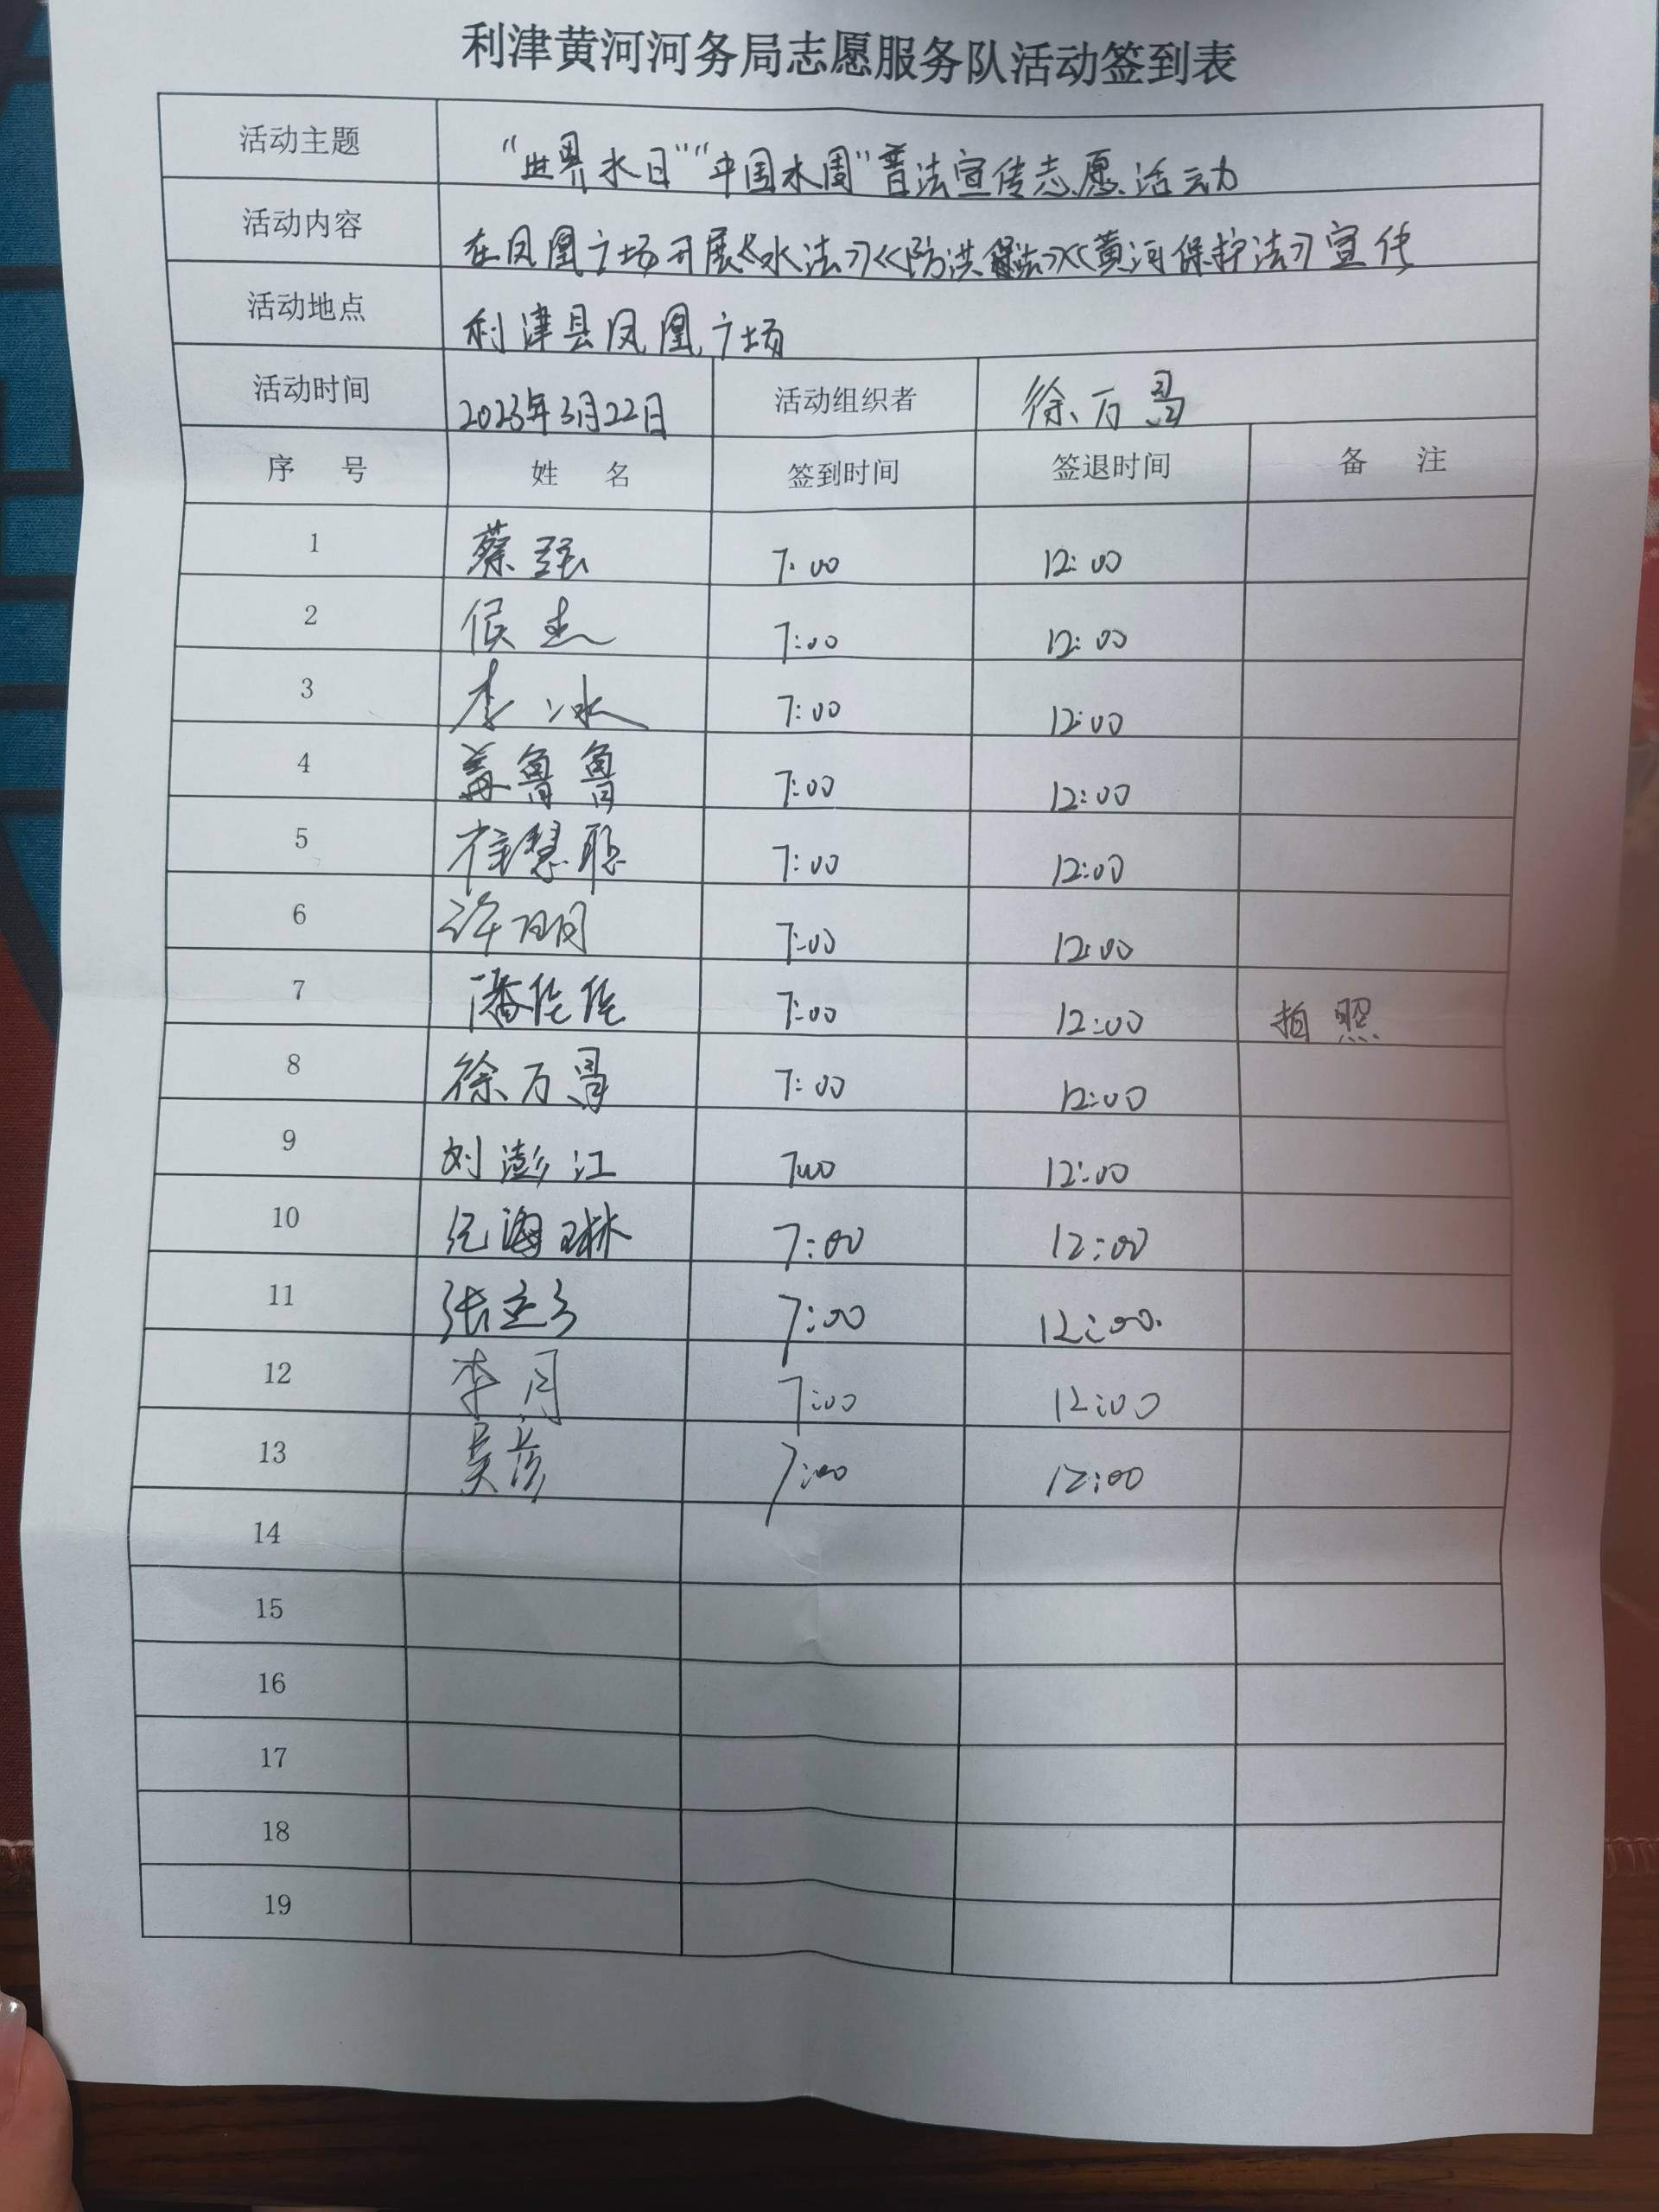 利津黄河河务局志愿服务队活动签到表
活动主题 “世界水日”“中国水周”普法宣传志愿活动
活动内容 在凤凰广场开展《水法》《防洪法》《黄河保护法》宣传
活动地点 利津县凤凰广场
活动时间 2023年3月22日 活动组织者 徐万
序 号 姓 名 签到时间 签退时间 备 注
1 蔡强 7:00 12:00
2 侯杰 7:00 12:00
3 李冰 7:00 12:00
4 盖鲁鲁 7:00 12:00
5 慧聪 7:00 12:00
6 许明 7:00 12:00
7 潘佳佳 7:00 12:00 拍照
8 徐万 7:00 12:00
9 刘澎江 7:00 12:00
10 纪海琳 7:00 12:00
11 张 7:00 12:00
12 李月 7:00 12:00
13 吴 7:00 12:00
14
15
16
17
18
19